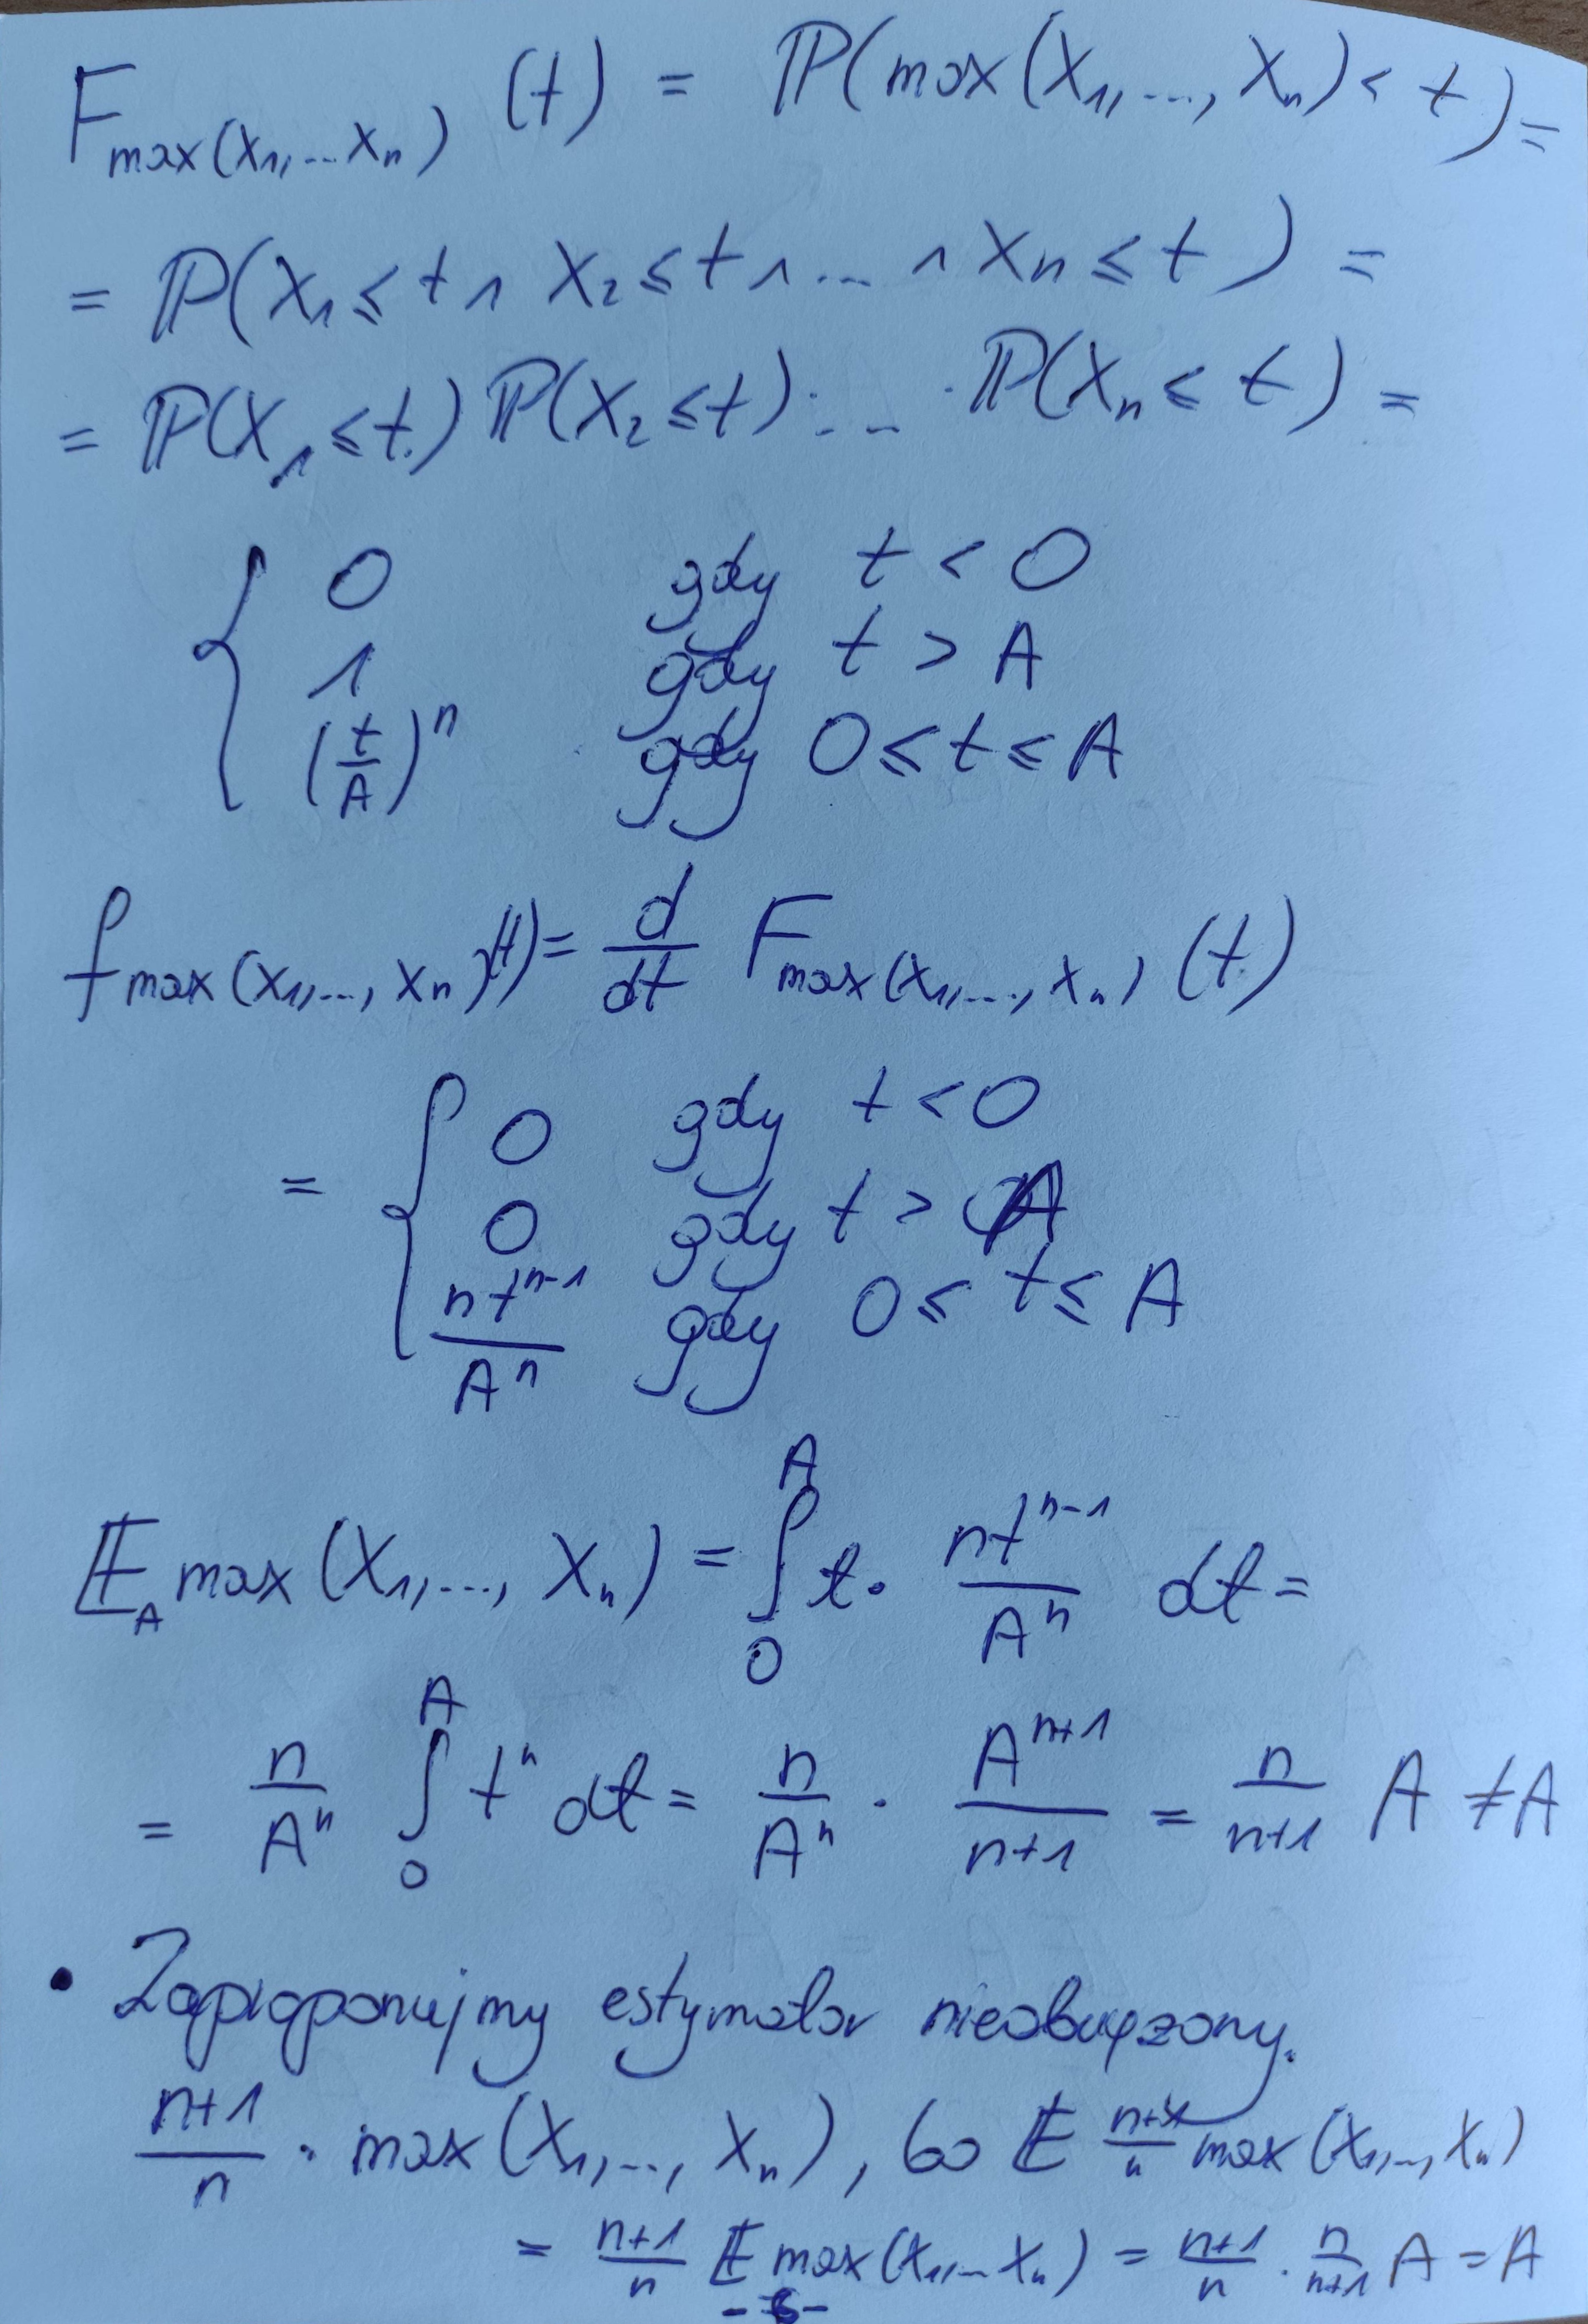 F_max(X₁,...Xₙ) (t) = ℙ(max(X₁,...,Xₙ) < t) =
= ℙ(X₁ ≤ t ∧ X₂ ≤ t ∧ ... ∧ Xₙ ≤ t) =
= ℙ(X₁ ≤ t) ℙ(X₂ ≤ t) · ... · ℙ(Xₙ ≤ t) =
{ 0 gdy t < 0
1 gdy t > A
(t/A)ⁿ gdy 0 ≤ t ≤ A
f_max(X₁,...,Xₙ)(t) = d/dt F_max(X₁,...,Xₙ) (t)
= { 0 gdy t < 0
0 gdy t > A
ntⁿ⁻¹/Aⁿ gdy 0 ≤ t ≤ A
𝔼_A max(X₁,...,Xₙ) = ∫₀ᴬ t · ntⁿ⁻¹/Aⁿ dt =
= n/Aⁿ ∫₀ᴬ tⁿ dt = n/Aⁿ · Aⁿ⁺¹/(n+1) = n/(n+1) A ≠ A
• Zaproponujmy estymator nieobciążony.
(n+1)/n · max(X₁,...,Xₙ), bo 𝔼 (n+1)/n max(X₁,...,Xₙ)
= (n+1)/n 𝔼 max(X₁,...Xₙ) = (n+1)/n · n/(n+1) A = A
-6-